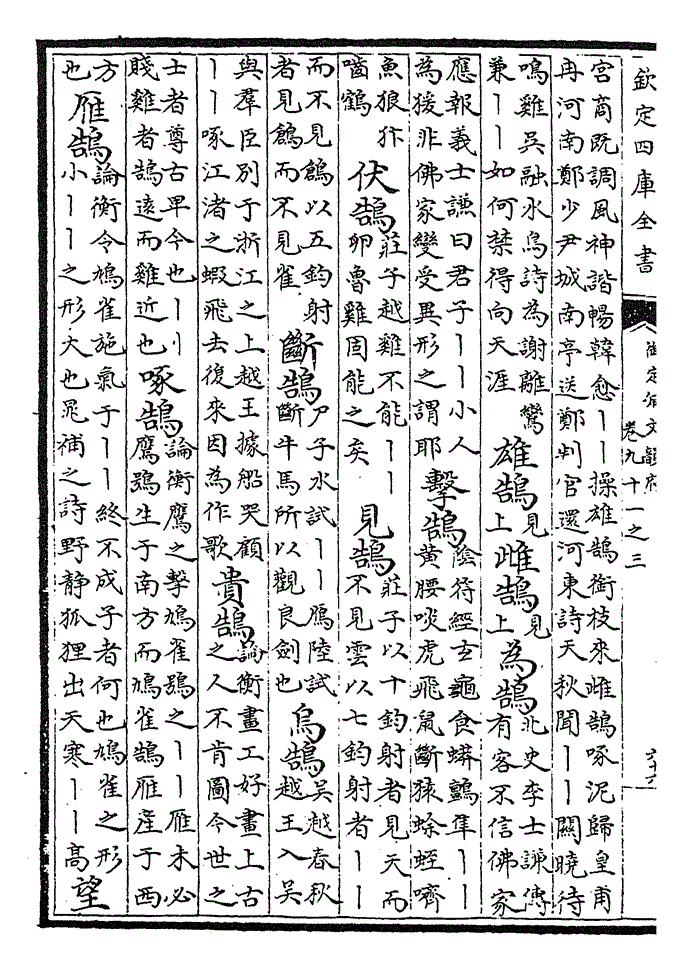 欽定四庫全書
御定佩文韻府
卷九十一之三
宮商既調風神諧暢韓愈丨丨操雄鵠銜枝來雌鵠啄泥歸皇甫
冉河南鄭少尹城南亭送鄭判官還河東詩天秋聞丨丨關曉待
鳴雞吳融水鳥詩為謝離鸞
兼丨丨如何禁得向天涯
雄鵠
見
上
雌鵠
見
上
為鵠
北史李士謙傳
有客不信佛家
應報義士謙曰君子丨丨小人
為猨非佛家變受異形之謂耶
擊鵠
陰符經玄龜食蟒鸇隼丨丨
黃腰啖虎飛鼠斷猿蜍蛭嚌
魚狼犿
嚙鶴
伏鵠
莊子越雞不能丨丨
卵魯雞固能之矣
見鵠
莊子以十鈞射者見天而
不見雲以七鈞射者丨丨
而不見鶬以五鈞射
者見鶬而不見雀
斷鵠
尸子水試丨丨鴈陸試
斷牛馬所以觀良劍也
烏鵠
吳越春秋
越王入吳
與羣臣別于浙江之上越王據船哭顧
丨丨啄江渚之蝦飛去復來因為作歌
貴鵠
論衡畫工好畫上古
之人不肯圖今世之
士者尊古卑今也丨丨
賤雞者鵠遠而雞近也
啄鵠
論衡鷹之擊鳩雀鵠之丨丨雁未必
鷹鴞生于南方而鳩雀鵠雁産于西
方
也
雁鵠
論衡令鳩雀施氣于丨丨終不成子者何也鳩雀之形
小丨丨之形大也晁補之詩野静狐狸出天寒丨丨高
望